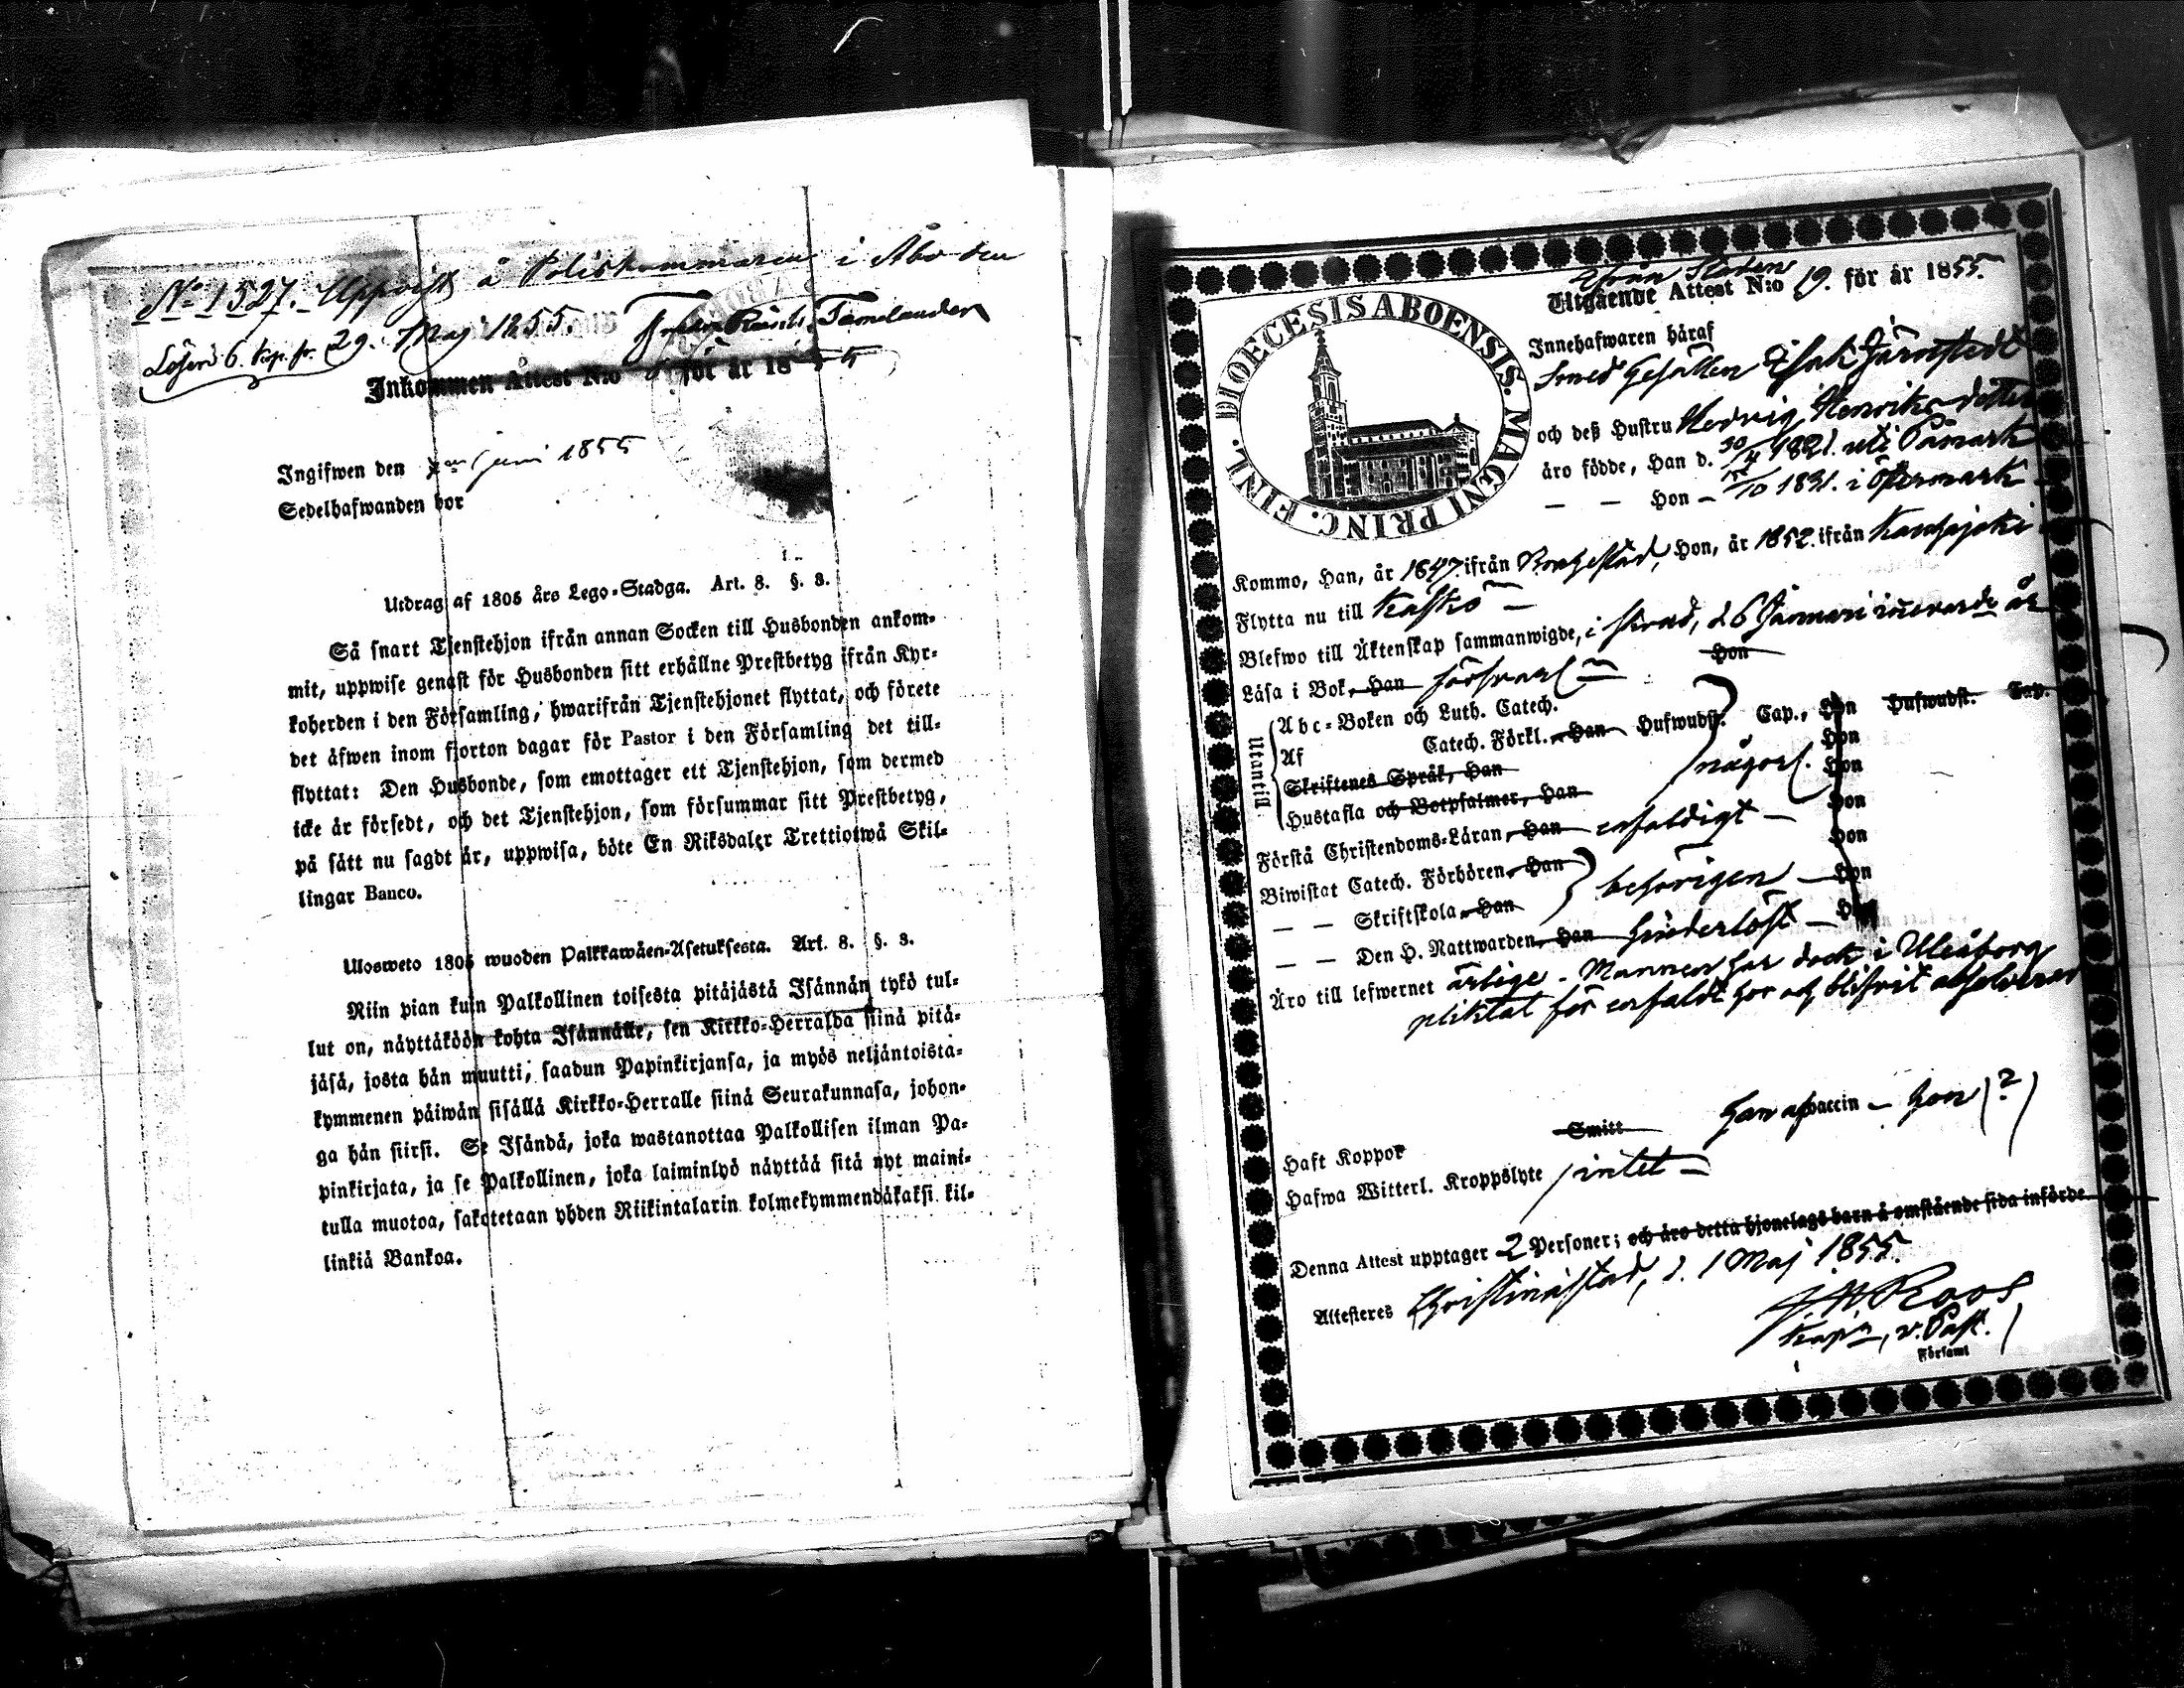 No 1527. Uppvist å Poliskammaren i Åbo den
29. Maj 1855.
Lösen 6. kop. sr.
Inkommen Attest N:o för år 18
Ingifwen den juni 1855
Sedelhafwanden bor
Utdrag af 1805 års Lego-Stadga. Art. 8. §. 3.
Så snart Tjenstehjon ifrån annan Socken till Husbonden ankom-
mit, uppwise genast för Husbonden sitt erhållne Prestbetyg ifrån Kyr-
koherden i den Församling, hwarifrån Tjenstehjonet flyttat, och förete
det äfwen inom fjorton dagar för Pastor i den Församling det till-
flyttat: Den Husbonde, som emottager ett Tjenstehjon, som dermed
icke är försedt, och det Tjenstehjon, som försummar sitt Prestbetyg,
på sätt nu sagdt är, uppwisa, böte En Riksdaler Trettiotwå Skil-
lingar Banco.
Ulosweto 1805 wuoden Palkkawäen-Asetuksesta. Art. 8. §. 3.
Niin pian kuin Palkollinen toisesta pitäjästä Isännän tykö tul-
lut on, näyttäköön kohta Isännälle, sen Kirkko-Herralda siinä pitä-
jäsä, josta hän muutti, saadun Papinkirjansa, ja myös neljäntoista-
kymmenen päiwän sisällä Kirkko-Herralle siinä Seurakunnasa, johon-
ga hän siirsi. Se Isändä, joka wastanottaa Palkollisen ilman Pa-
pinkirjata, ja se Palkollinen, joka laiminlyö näyttää sitä nyt maini-
tulla muotoa, sakotetaan yhden Riikintalarin kolmekymmendäkaksi kil-
linkiä Bankoa.
DIOECESIS ABOENSIS. MAGNI PRINC. FINL.
ifrån Staden
Utgående Attest N:o 19. för år 1855.
Innehafwaren häraf
Smed Gesällen Isak Järnstedt
och deß Hustru Hedvig Henriksdotter
äro födde, Han d. 30/4 1821. uti Påmark
— — Hon — /10 1831. i Östermark
Kommo, Han, år 1847. ifrån Hon, år 1852. ifrån Kauhajoki
Flytta nu till Kaskö —
Blefwo till Äktenskap sammanwigde, i stad, d. 6 Januari innevarande år
Läsa i Bok, Han försvarl. Hon
Utantill
Abc-Boken och Luth. Catech.
Af Catech. Förkl. Han Hufwudst. Cap., Hon Hufwudst. Cap.
Skriftenes Språk, Han Hon
Hustafla och Botpsalmer, Han någorl. Hon
Förstå Christendoms-Läran, Han enfaldigt — Hon
Biwistat Catech. Förhören, Han behörigen — Hon
— — Skriftskola, Han Hon
— — Den H. Nattwarden, Han hinderlöst — Hon
Äro till lefwernet ärlige. Mannen har dock i Uleåborg
pliktat för enfaldt hor och blifvit absolverad
Haft Koppor Smitt han af vaccin — hon (?)
Hafwa Witterl. Kroppslyte intet —
Denna Attest upptager 2 Personer; och äro detta hjonelags barn å omstående sida införde.
Attesteres Christinæstad, d. 1 Maj 1855.
Roos
Kapn, v. Past.
Församl